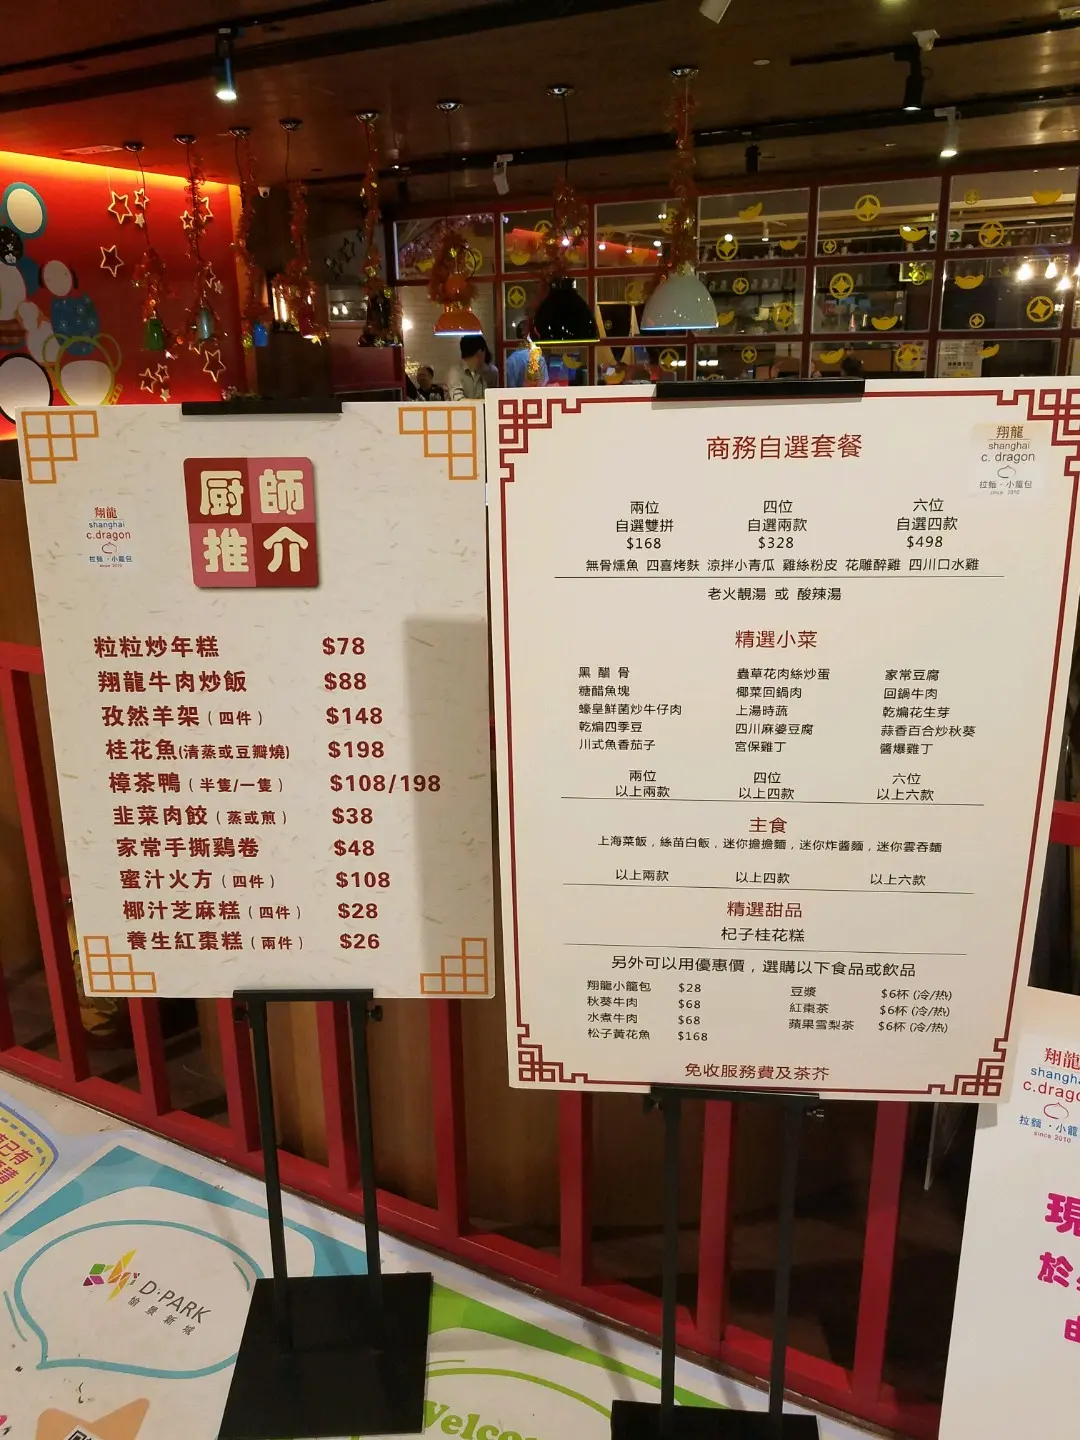 厨師
推介
翔龍
shanghai
c.dragon
拉麵・小籠包
since 2010
粒粒炒年糕 $78
翔龍牛肉炒飯 $88
孜然羊架（四件） $148
桂花魚(清蒸或豆瓣燒) $198
樟茶鴨（半隻/一隻） $108/198
韭菜肉餃（蒸或煎） $38
家常手撕鷄卷 $48
蜜汁火方（四件） $108
椰汁芝麻糕（四件） $28
養生紅棗糕（兩件） $26
翔龍
shanghai
c. dragon
拉麵・小籠包
since 2010
商務自選套餐
兩位 四位 六位
自選雙拼 自選兩款 自選四款
$168 $328 $498
無骨燻魚 四喜烤麩 涼拌小青瓜 雞絲粉皮 花雕醉雞 四川口水雞
老火靚湯 或 酸辣湯
精選小菜
黑醋骨 蟲草花肉絲炒蛋 家常豆腐
糖醋魚塊 椰菜回鍋肉 回鍋牛肉
蠔皇鮮菌炒牛仔肉 上湯時蔬 乾煸花生芽
乾煸四季豆 四川麻婆豆腐 蒜香百合炒秋葵
川式魚香茄子 宮保雞丁 醬爆雞丁
兩位 四位 六位
以上兩款 以上四款 以上六款
主食
上海菜飯，絲苗白飯，迷你擔擔麵，迷你炸醬麵，迷你雲吞麵
以上兩款 以上四款 以上六款
精選甜品
杞子桂花糕
另外可以用優惠價，選購以下食品或飲品
翔龍小籠包 $28 豆漿 $6杯 (冷/热)
秋葵牛肉 $68 紅棗茶 $6杯 (冷/热)
水煮牛肉 $68 蘋果雪梨茶 $6杯 (冷/热)
松子黃花魚 $168
免收服務費及茶芥
翔龍
c.drago
拉麵・小籠
since 2010
現
於
D·PARK
愉景新城
Welco